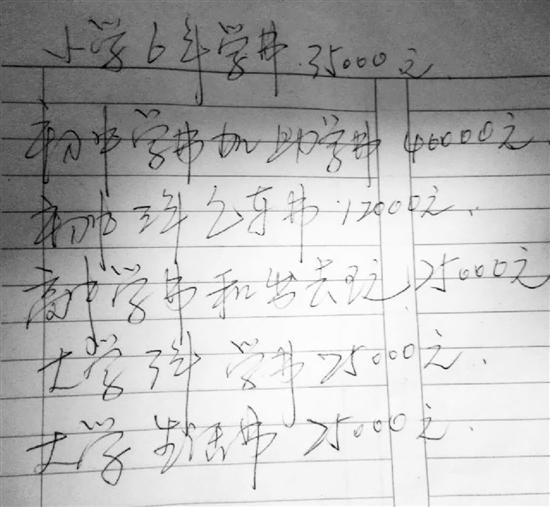 小学6年学费.35000元
初中学费加助学费46000元
初中三年包车费.12000元.
高中学费和 25000元
大学3年 学费75000元.
大学生活费 75000元.